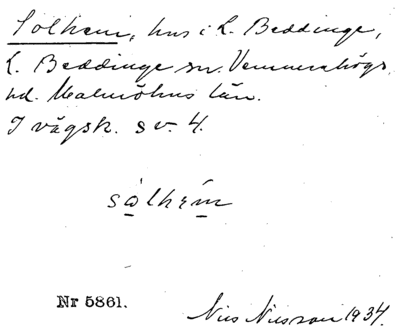 Solhem, hus i L. Beddinge,
L. Beddinge sn. Vemmenhögs
hd. Malmöhus län.
I vägsk. sv. 4.
sòlhém
Nr 5861.
Nils Nilsson 1934.